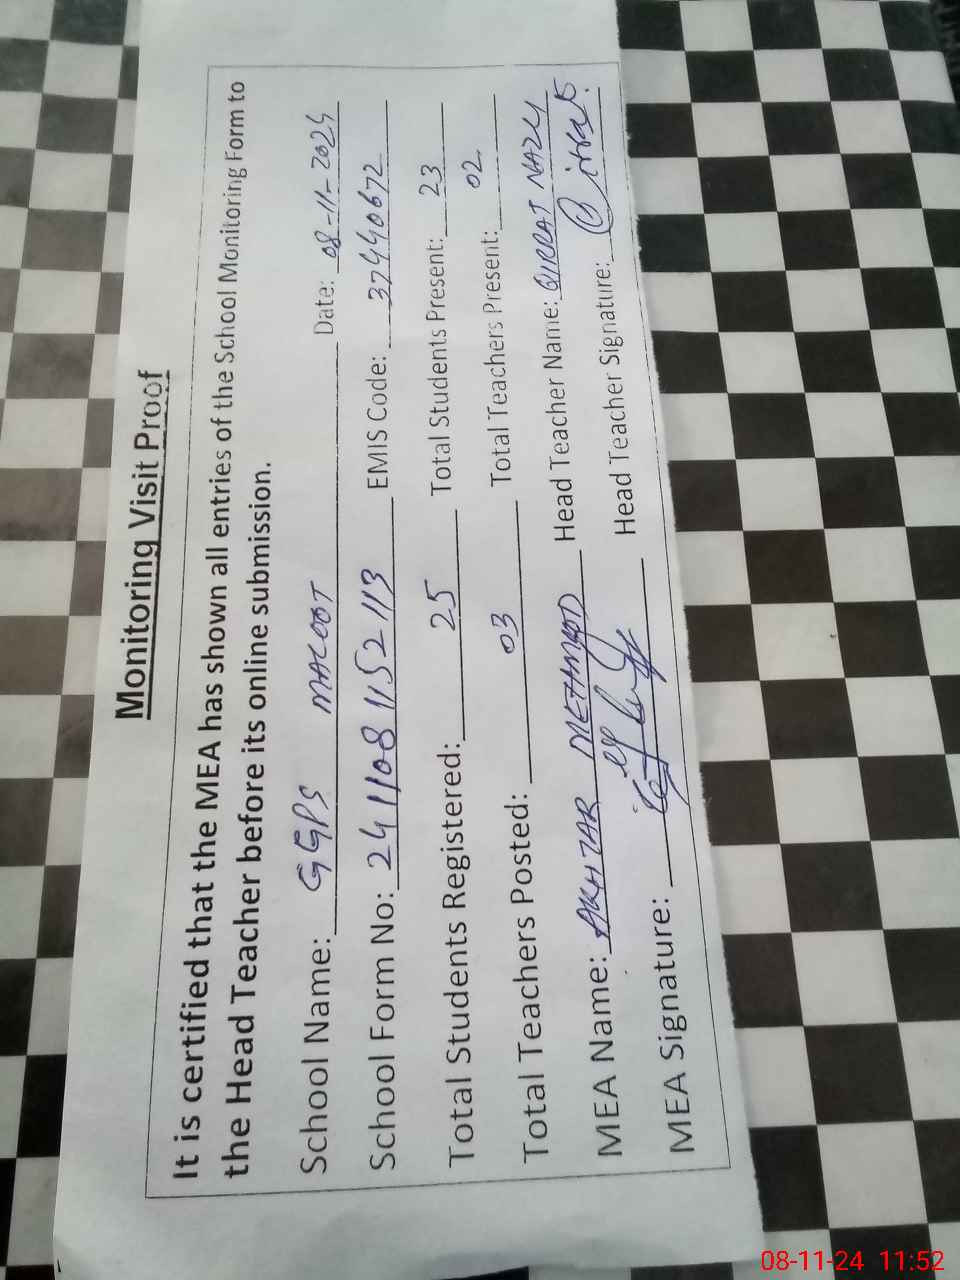 Monitoring Visit Proof
It is certified that the MEA has shown all entries of the School Monitoring Form to
the Head Teacher before its online submission.
School Name: GGPS MALOOT Date: 08-11-2024
School Form No: 2411081152113 EMIS Code: 37440672
Total Students Registered: 25 Total Students Present: 23
Total Teachers Posted: 03 Total Teachers Present: 02
MEA Name: AKHTAR MEHMOOD Head Teacher Name: QURRAT NAZLI
MEA Signature: Head Teacher Signature:
08-11-24 11:52